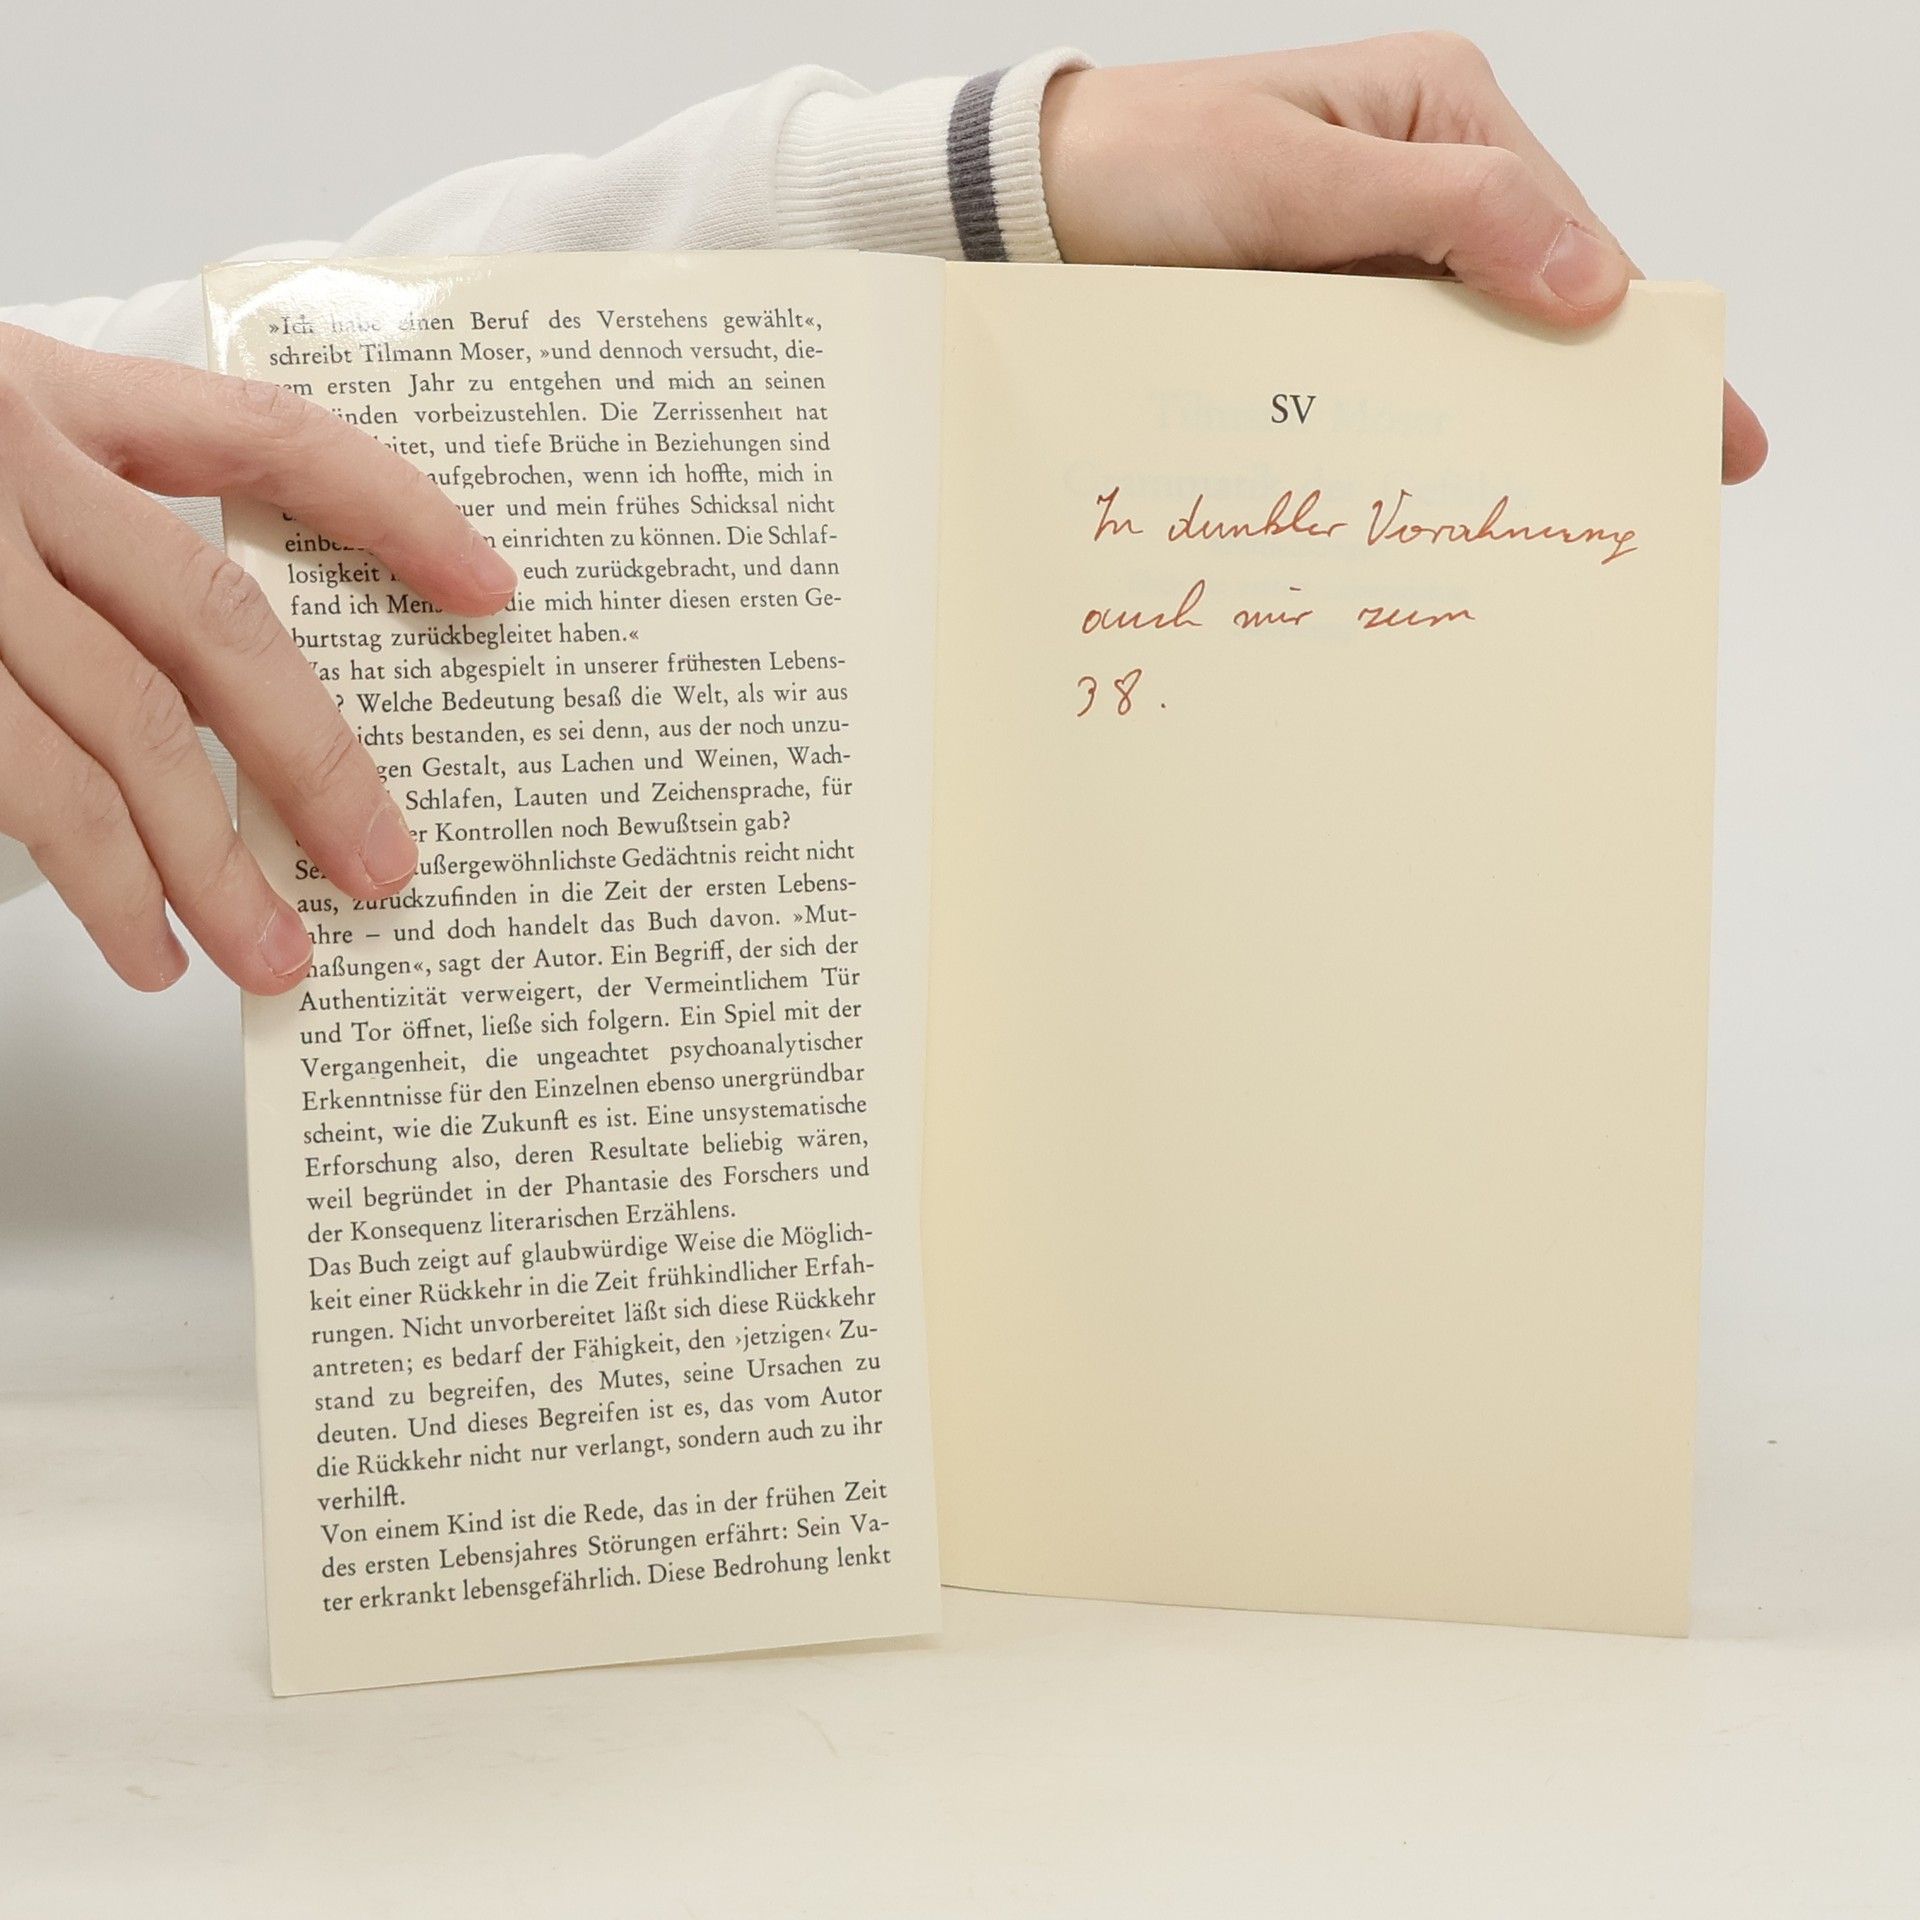 »Ich habe einen Beruf des Verstehens gewählt«,
schreibt Tilmann Moser, »und dennoch versucht, die-
sem ersten Jahr zu entgehen und mich an seinen
vorbeizustehlen. Die Zerrissenheit hat
und tiefe Brüche in Beziehungen sind
aufgebrochen, wenn ich hoffte, mich in
und mein frühes Schicksal nicht
einrichten zu können. Die Schlaf-
losigkeit euch zurückgebracht, und dann
fand ich die mich hinter diesen ersten Ge-
burtstag zurückbegleitet haben.«
Was hat sich abgespielt in unserer frühesten Lebens-
? Welche Bedeutung besaß die Welt, als wir aus
bestanden, es sei denn, aus der noch unzu-
Gestalt, aus Lachen und Weinen, Wach-
Schlafen, Lauten und Zeichensprache, für
Kontrollen noch Bewußtsein gab?
außergewöhnlichste Gedächtnis reicht nicht
aus, zurückzufinden in die Zeit der ersten Lebens-
jahre – und doch handelt das Buch davon. »Mut-
maßungen«, sagt der Autor. Ein Begriff, der sich der
Authentizität verweigert, der Vermeintlichem Tür
und Tor öffnet, ließe sich folgern. Ein Spiel mit der
Vergangenheit, die ungeachtet psychoanalytischer
Erkenntnisse für den Einzelnen ebenso unergründbar
scheint, wie die Zukunft es ist. Eine unsystematische
Erforschung also, deren Resultate beliebig wären,
weil begründet in der Phantasie des Forschers und
der Konsequenz literarischen Erzählens.
Das Buch zeigt auf glaubwürdige Weise die Möglich-
keit einer Rückkehr in die Zeit frühkindlicher Erfah-
rungen. Nicht unvorbereitet läßt sich diese Rückkehr
antreten; es bedarf der Fähigkeit, den ›jetzigen‹ Zu-
stand zu begreifen, des Mutes, seine Ursachen zu
deuten. Und dieses Begreifen ist es, das vom Autor
die Rückkehr nicht nur verlangt, sondern auch zu ihr
verhilft.
Von einem Kind ist die Rede, das in der frühen Zeit
des ersten Lebensjahres Störungen erfährt: Sein Va-
ter erkrankt lebensgefährlich. Diese Bedrohung lenkt
SV
In dunkler Vorahnung
auch mir zum
38.